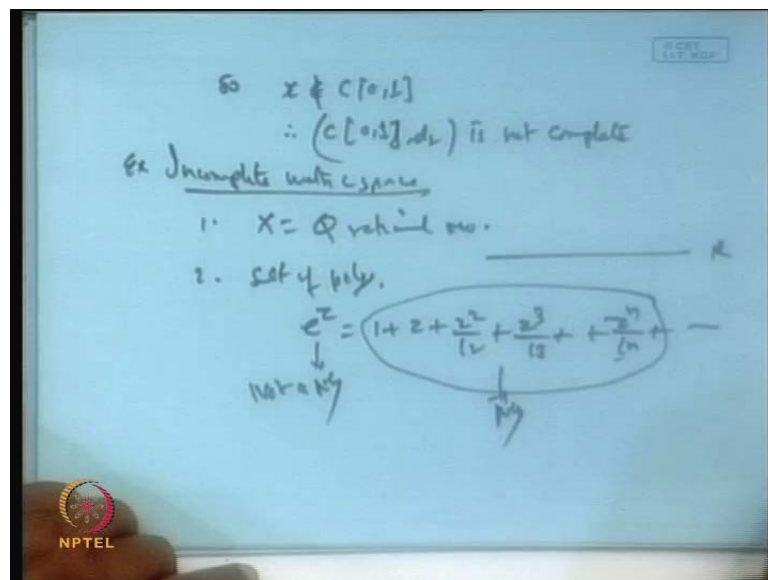 © CET
I.I.T. KGP
So x ∉ C[0,1]
∴ (C[0,1], d₂) is not complete
Ex Incomplete metric space
1. X = Q rational no.
R
2. set of poly.
e^z = 1 + z + z²/⌊2 + z³/⌊3 + + zⁿ/⌊n + —
↓ ↓
Not a poly poly
NPTEL